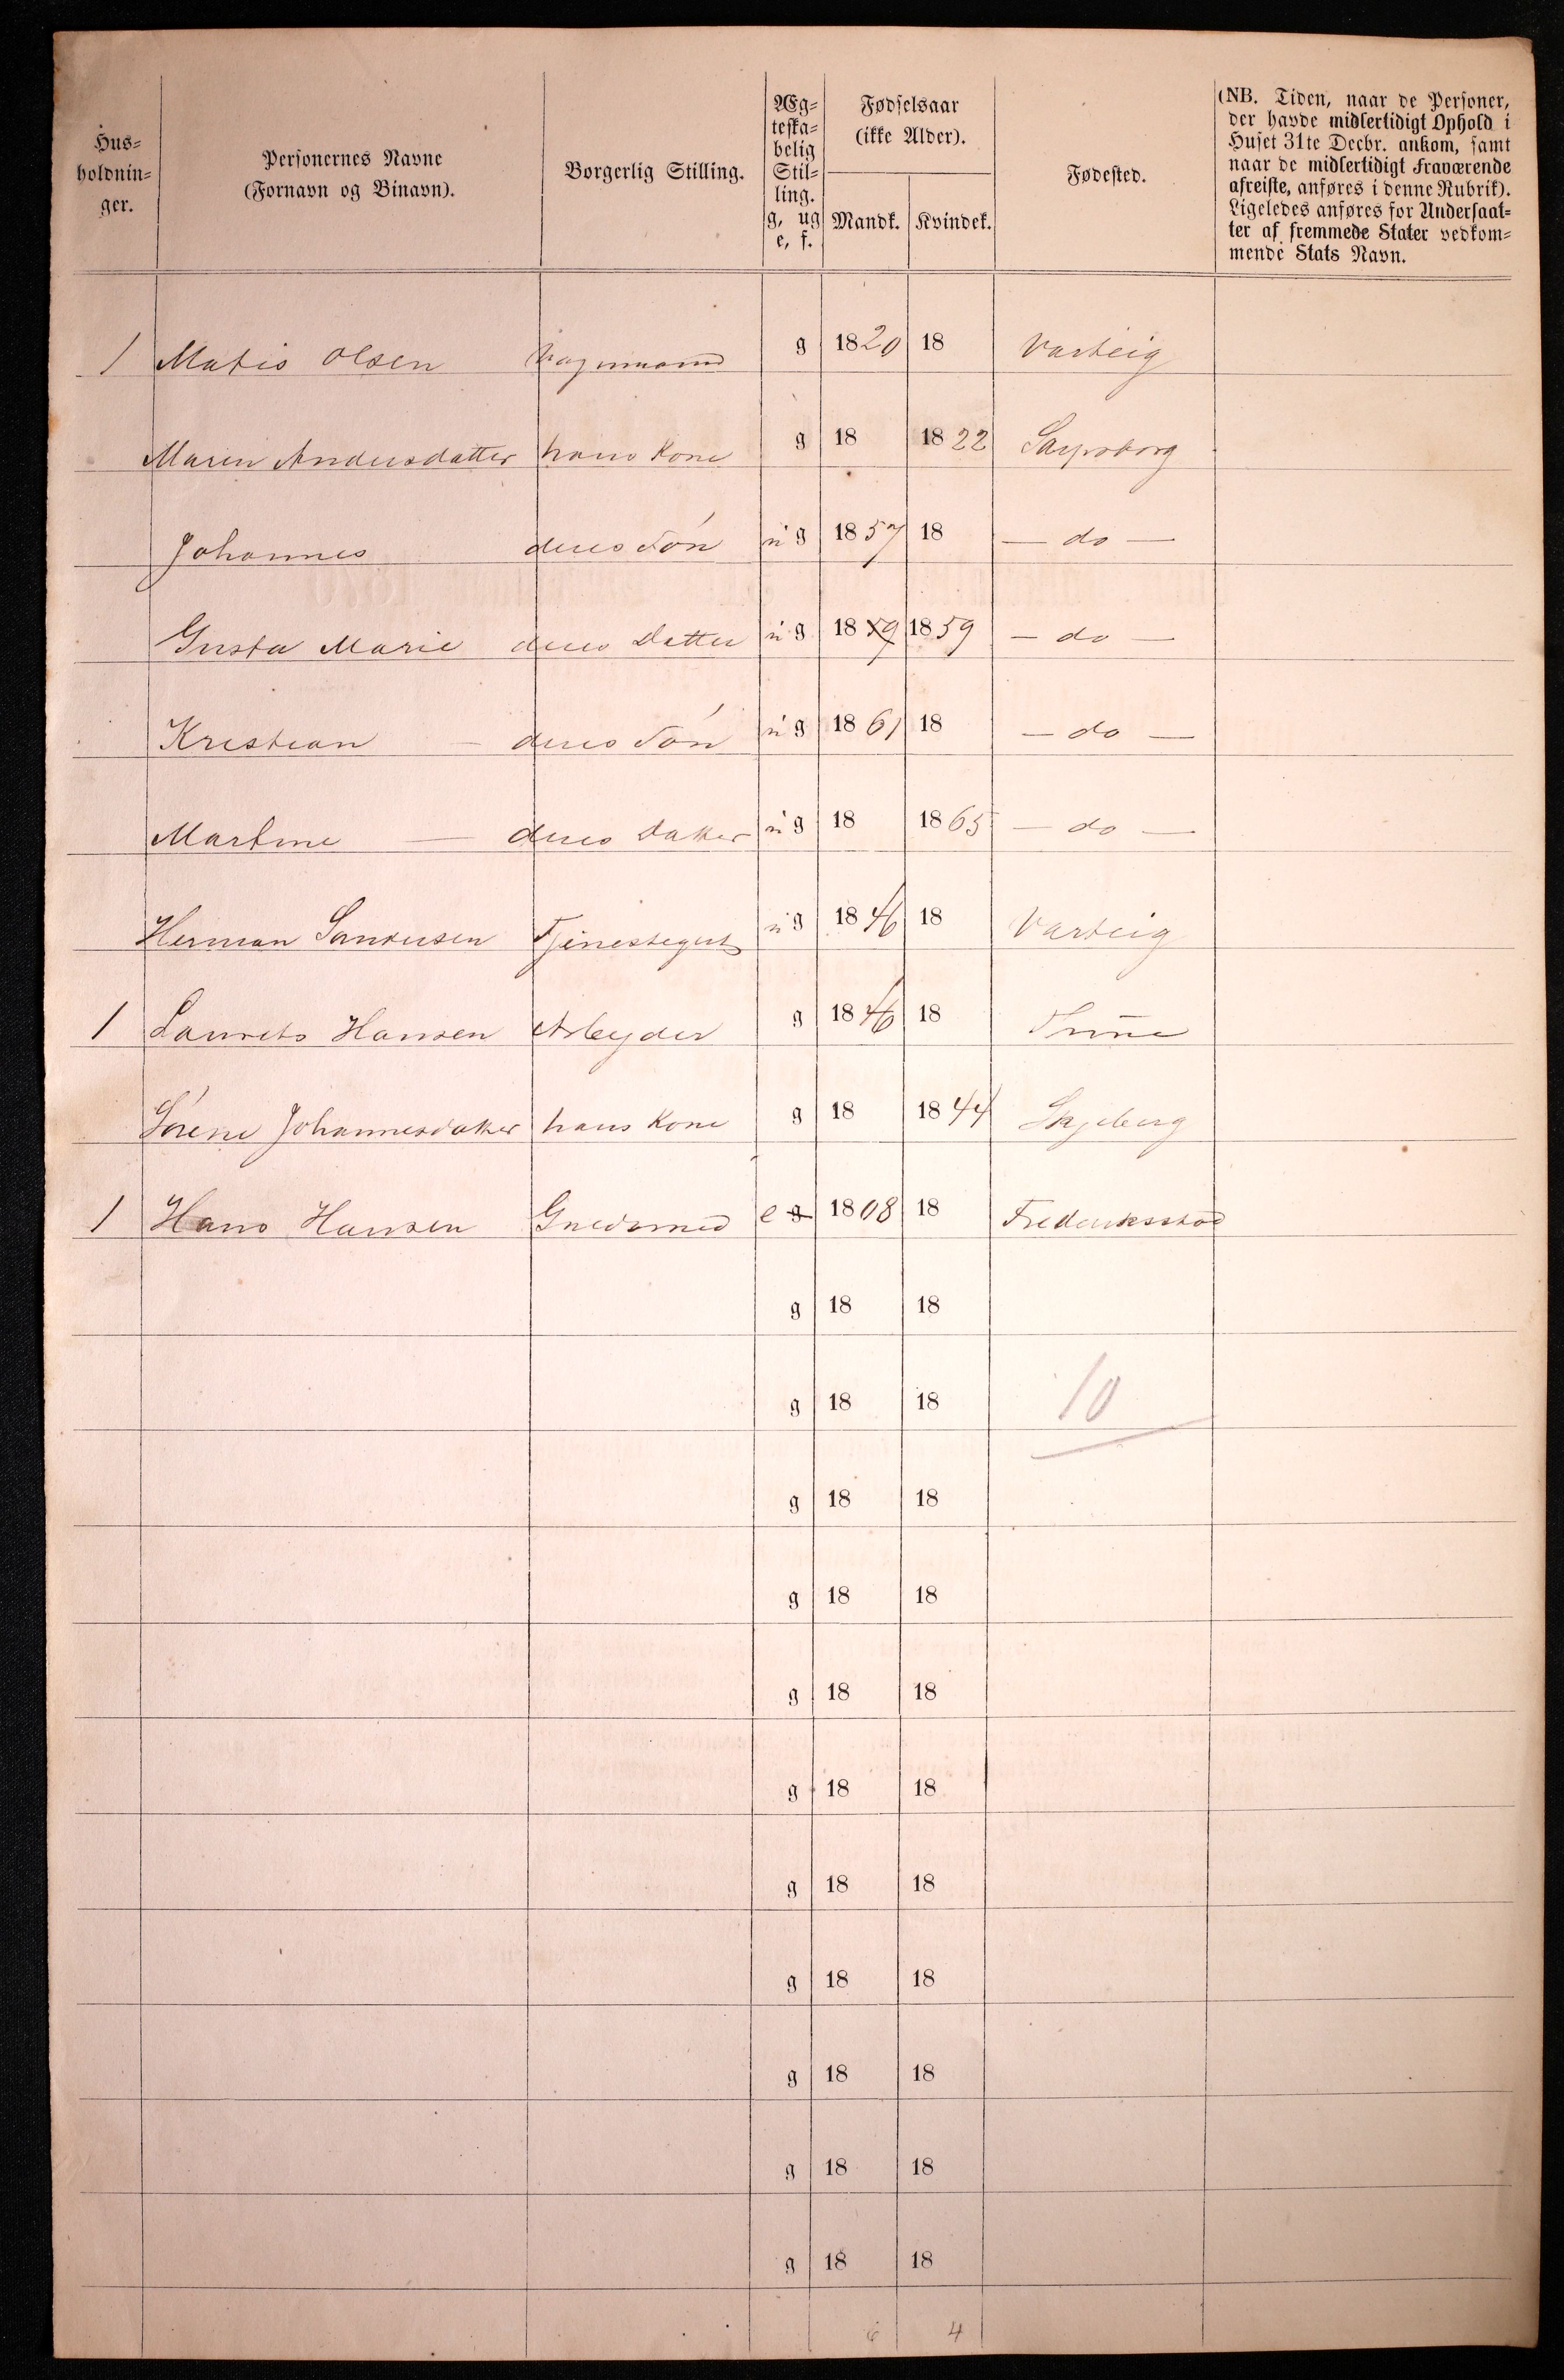 Hus-
holdnin-
ger.
Personernes Navne
(Fornavn og Binavn).
Borgerlig Stilling.
Æg-
teska-
belig
Stil-
ling.
g, ug
e, f.
Fødselsaar
(ikke Alder).
Mandk. Kvindek.
Fødested.
(NB. Tiden, naar de Personer,
der havde midlertidigt Ophold i
Huset 31te Decbr. ankom, samt
naar de midlertidigt Fraværende
afreiste, anføres i denne Rubrik).
Ligeledes anføres for Undersaat-
ter af fremmede Stater vedkom-
mende Stats Navn.
1 Matis Olsen Vognmand g 1820 18 Varteig
Maren Andersdatter hans Kone g 18 1822 Sarpsborg
Johannes deres Søn ug 1857 18 — do —
Gusta Marie deres Datter ug 1859 1859 — do —
Kristian — deres Søn ug 1861 18 — do —
Martine — deres Datter ug 18 1865 — do —
Herman Tjenestegut ug 1846 18 Varteig
1 Laurits Hansen Arbeyder g 1846 18 Tune
Sørene Johannesdatter hans Kone g 18 1844 Skjeberg
1 Hans Hansen e g 1808 18 Frederiksstad
g 18 18
g 18 18 10
g 18 18
g 18 18
g 18 18
g 18 18
g 18 18
g 18 18
g 18 18
g 18 18
g 18 18
6 4